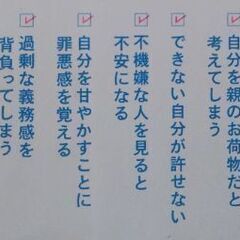 自分を親のお荷物だと
考えてしまう
できない自分が許せない
不機嫌な人を見ると
不安になる
自分を甘やかすことに
罪悪感を覚える
過剰な義務感を
背負ってしまう